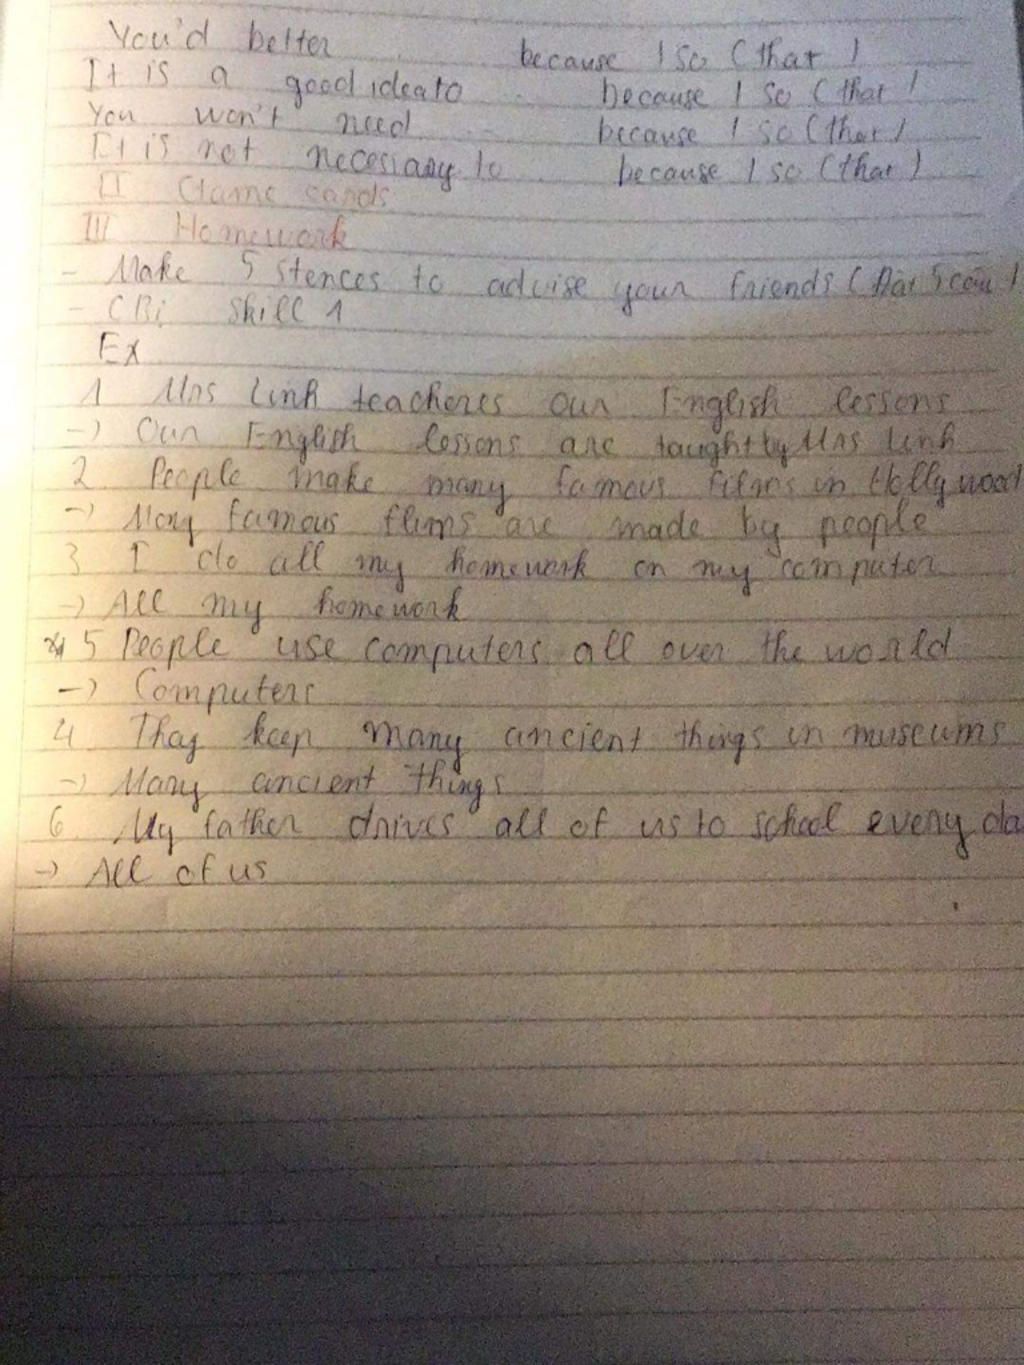 You'd better .... because / so (that)
It is a good idea to ... because / so (that)
You won't need ... because / so (that)
It is not necessary to ... because / so (that)
II Game cards
III Homework
- Make 5 stences to advise your friends (Đặt 5 câu)
- CBi Skill 1
Ex
1 Mrs Linh teacheres our English lessons
-> Our English lessons are taught by Mrs Linh
2 People make many famous films in Hollywood
-> Many famous flims are made by people
3 I do all my homework on my computer
-> All my homework
5 People use computers all over the world
-> Computers
4 They keep many ancient things in museums
-> Many ancient things
6 My father drives all of us to school every da
-> All of us